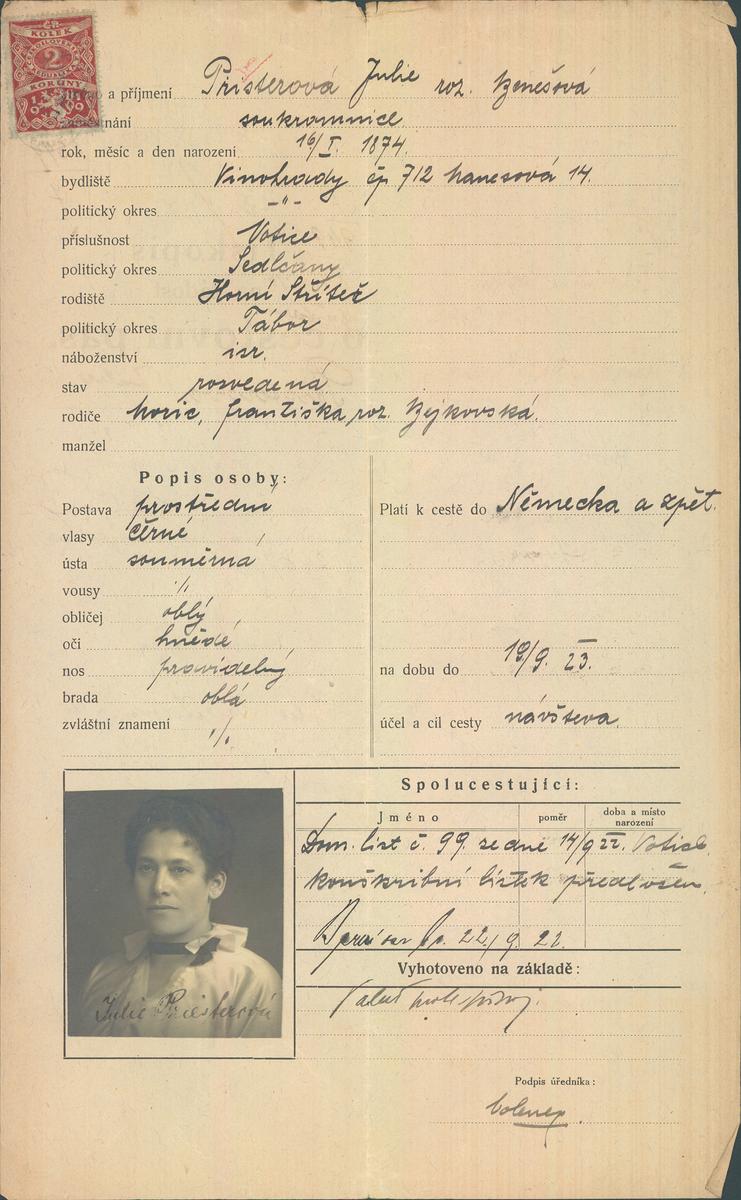 ČR
KOLEK
2
KORUNY
a příjmení Pristerová Julie roz. Benešová
zaměstnání soukromnice
rok, měsíc a den narození 16/I. 1874.
bydliště Vinohrady čp 712 Manesová 14.
politický okres -"-
příslušnost Votice
politický okres Sedlčany
rodiště Horní Střítež
politický okres Tábor
náboženství isr.
stav rosvedená
rodiče Moric, Františka, roz.
manžel
Popis osoby:
Postava prostřední
vlasy černé
ústa souměrná
vousy ·/.
obličej oblý
oči hnědé
nos pravidelný
brada oblá
zvláštní znamení ·/.
Platí k cestě do Německa a zpět.
na dobu do 19/9. 23.
účel a cíl cesty návšteva.
Spolucestující:
Jméno poměr doba a místo narození
Dom. list č. 99 ze dne 14/9 22. Votice.
konskribní lístek předložen.
22./9. 22.
Vyhotoveno na základě:
Julie Priesterová
Podpis úředníka: